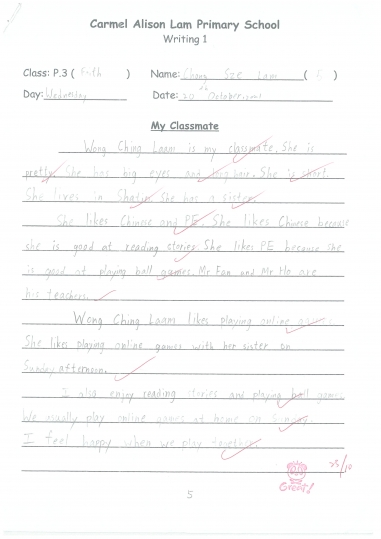 Carmel Alison Lam Primary School
Writing 1
Class: P.3 ( Faith ) Name: Chong Sze Lam ( 5 )
Day: Wednesday Date: 20th October
My Classmate
Wong Ching Laam is my classmate. She is
pretty. She has big eyes and long hair. She is short.
She lives in Shatin. She has a sister.
She likes Chinese and PE. She likes Chinese because
she is good at reading stories. She likes PE because she
is good at playing ball games. Mr Fan and Mr Ho are
her teachers.
Wong Ching Laam likes playing online games.
She likes playing online games with her sister on
Sunday afternoon.
I also enjoy reading stories and playing ball games.
We usually play online games at home on Sunday.
I feel happy when we play together.
Great!
5